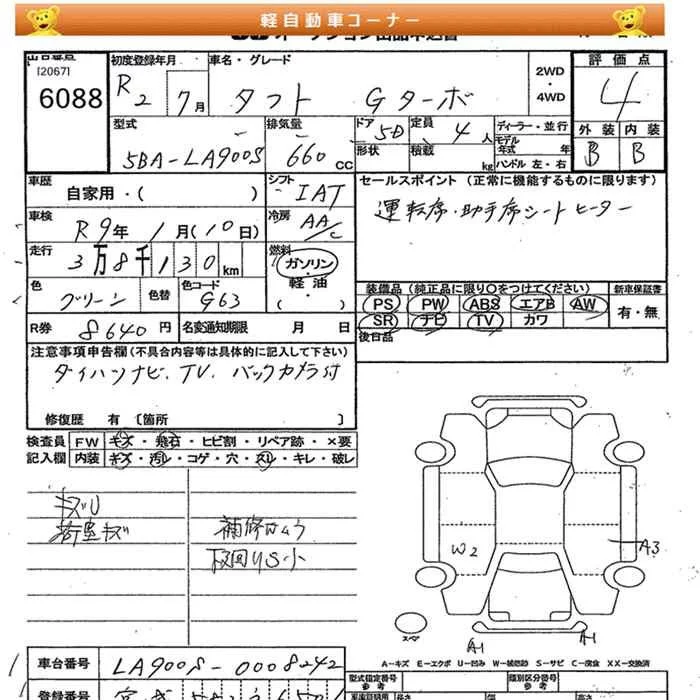 軽自動車コーナー
[2067]
6088
初度登録年月
R2 7月
車名・グレード
タフト Gターボ
2WD
・
4WD
評価点
4
外装 内装
B B
型式
5BA-LA900S
排気量
660cc
ドア
5D
定員
4人
形状
積載
kg
ディーラー・並行
モデル年式 年
ハンドル 左・右
車歴
自家用・( )
シフト
IAT
車検
R9年 1月(10日)
冷房
AA/C
走行
3万8千130km
燃料
ガソリン・
軽油
・
( )
色
グリーン
色替
色コード
G63
R券 8640円
名変通知期限 月 日
セールスポイント (正常に機能するものに限ります)
運転席・助手席シートヒーター
装備品 (純正品に限り○をつけてください)
PS PW ABS エアB AW
SR ナビ TV カワ
新車保証書
有・無
後日品
注意事項申告欄(不具合内容等は具体的に記入して下さい)
ダイハツナビ、TV、バックカメラ付
修復歴 有 〔箇所 〕
検査員 FW キズ・飛石・ヒビ割・リペア跡・×要
記入欄 内装 キズ・汚レ・コゲ・穴・スレ・キレ・破レ
キズU
W2
A3
スペア
A1
A1
A-キズ E-エクボ U-凹み W-補修跡 S-サビ C-腐食 XX-交換済
車台番号 LA900S-0008242
型式指定番号
参考
類別区分番号
参考
登録番号
長さ